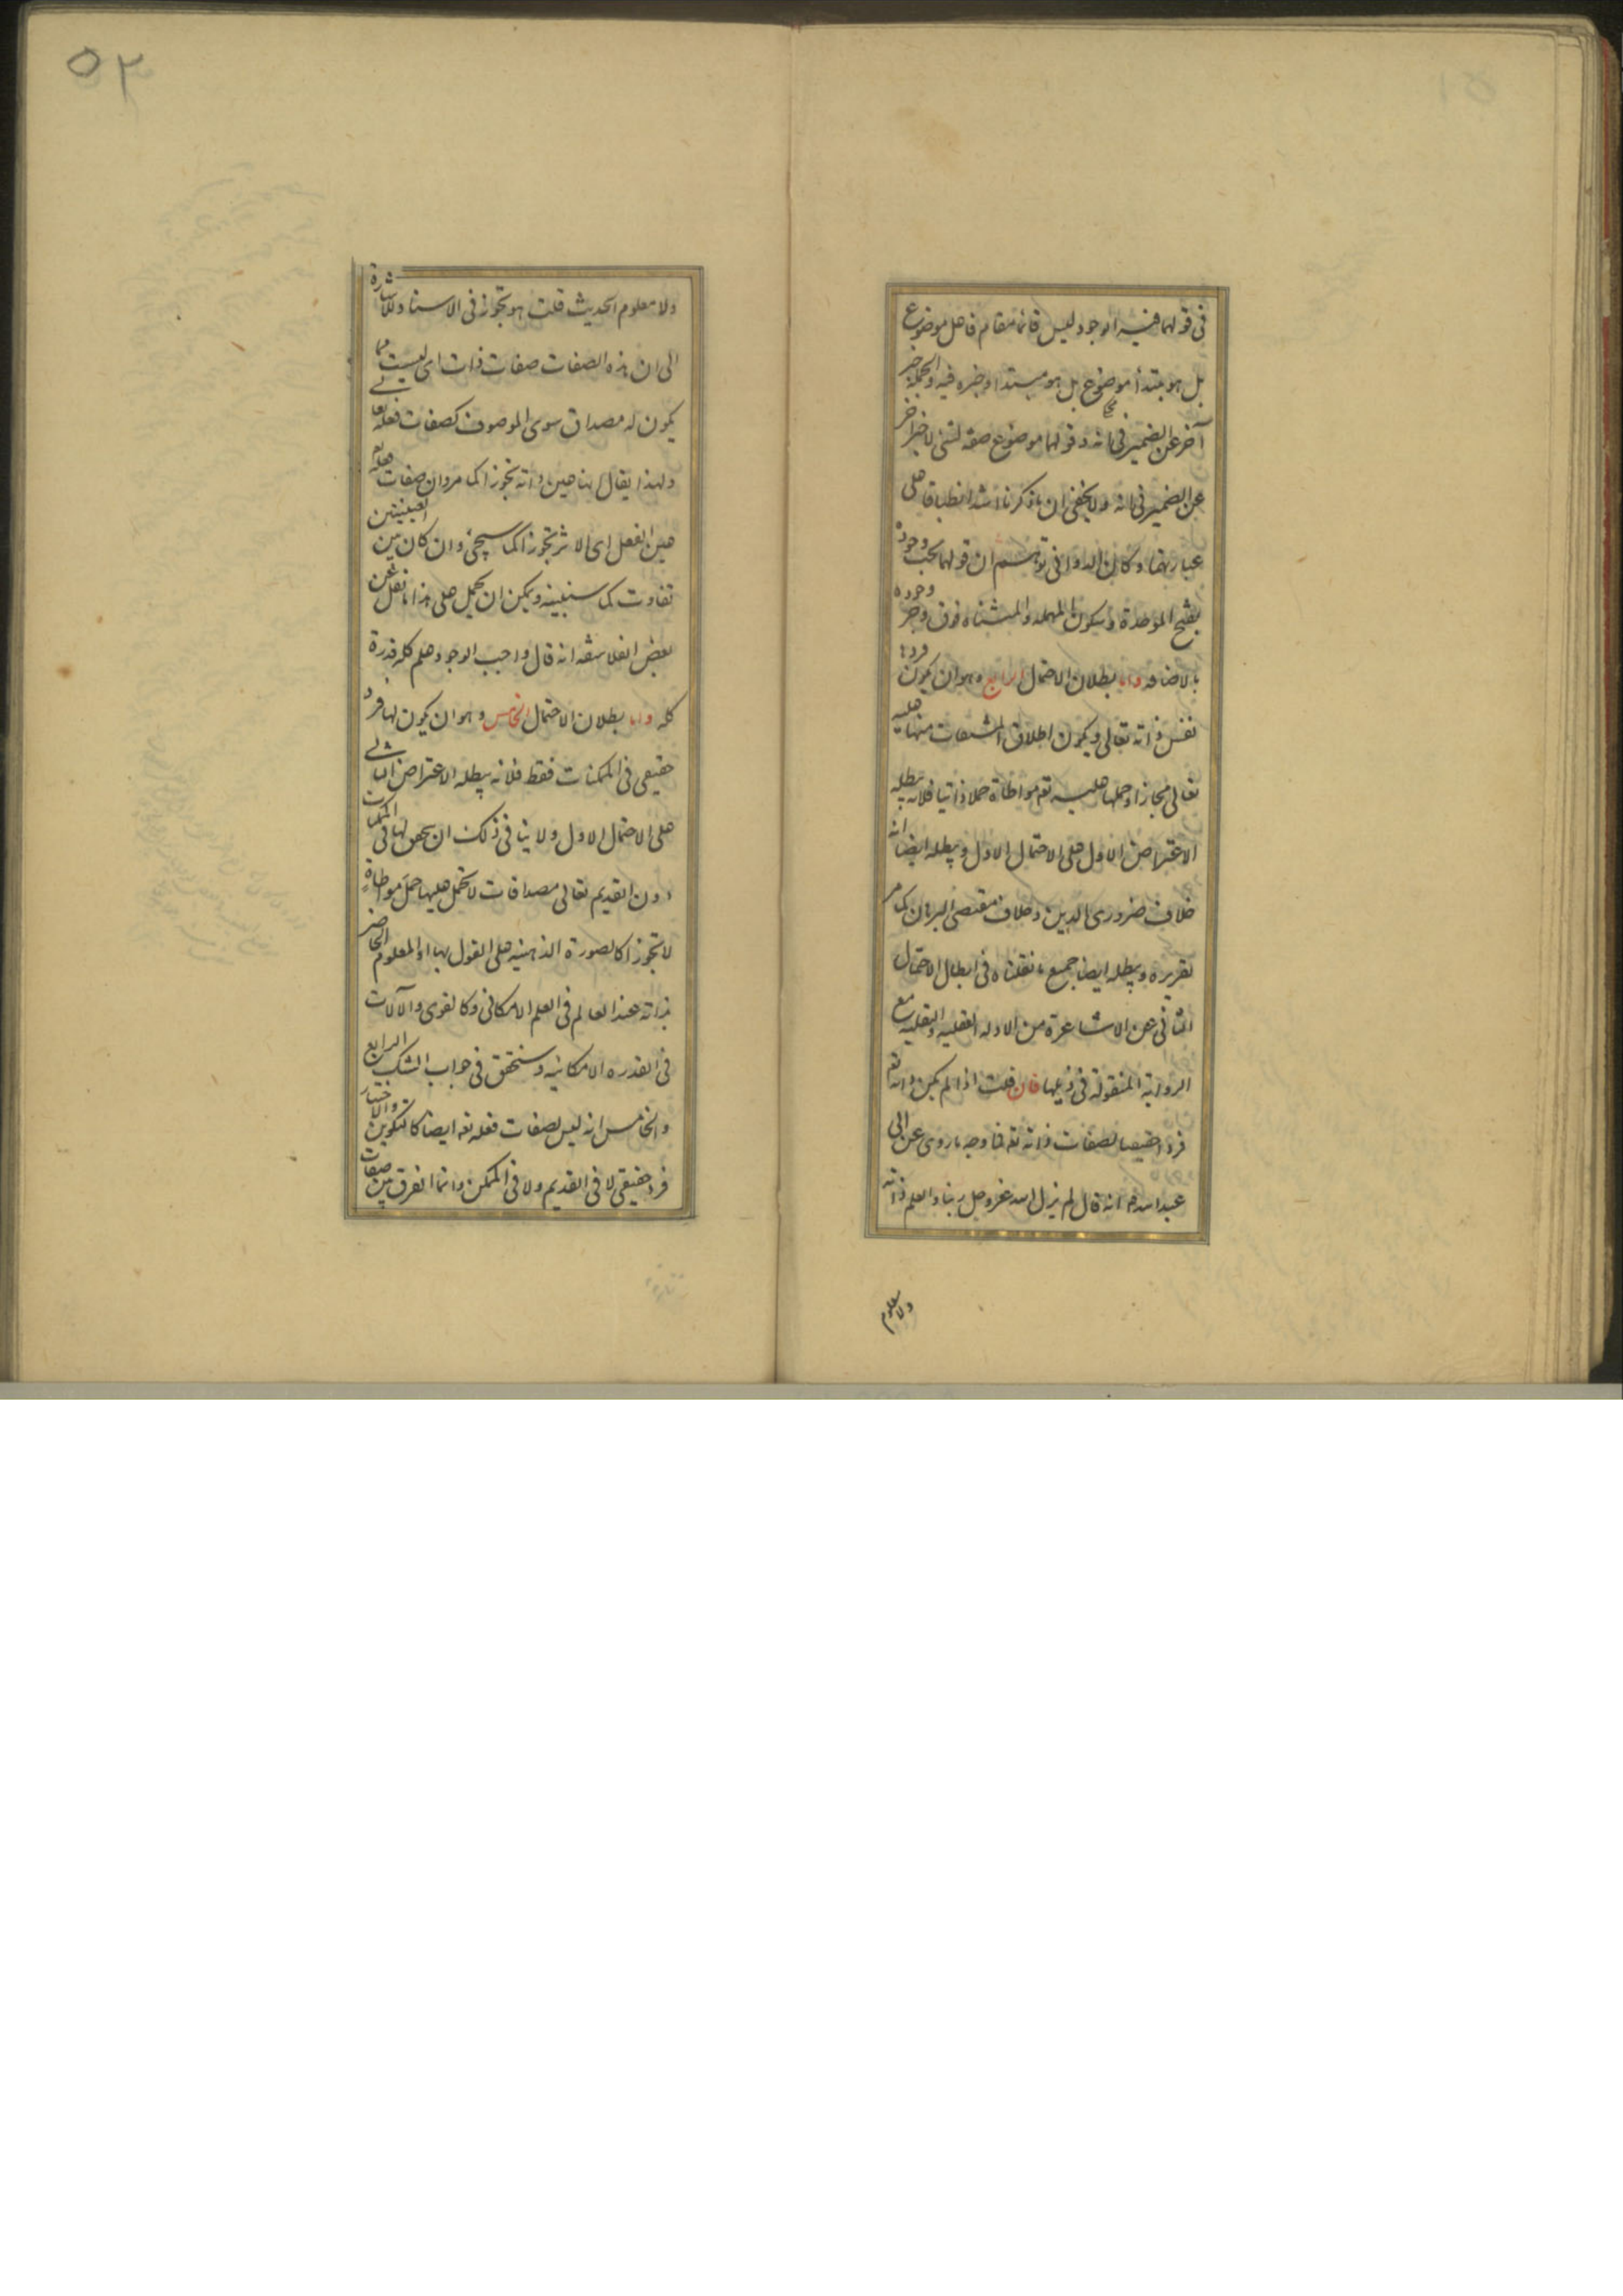 في قولهما فيه الوجود ليس قائما مقام فاعل موضوع
بل هو مبتدأ موضوع بل هو مبتدا وخبره فيه والجملة خبر
آخر عن الضمير في انه وقولهما موضوع صفة لشئ لا خبر آخر
عن الضمير في انه ولا يخفى ان ما ذكرنا اشد انطباقا على
عبارتهما وكان الدواني توهم ان قولهما وجوده
بفتح الموحدة وسكون المهملة والمثناة فوق وجر وجوده
بالاضافة واما بطلان الاحتمال الرابع وهو ان يكون فردها
نفس ذاته تعالى ويكون اطلاق المشتقات منها عليه
تعالى مجازا وحملها عليه تع مواطاة حملا ذاتيا فلانه يبطله
الاعتراض الاول على الاحتمال الاول ويبطله ايضا انه
خلاف ضروري الدين وخلاف مقتضى البرهان كما مر
تقريره ويبطله ايضا جميع ما نقلناه في ابطال الاحتمال
الثاني عن الاشاعرة من الادلة العقلية والنقلية مع
الرواية المنقولة في ذيلها فان قلت اذا لم يكن ذاته تع
فردا حقيقيا لصفات ذاته تع فما وجه ما روى عن ابى
عبد الله انه قال لم يزل الله عز وجل ربنا والعلم ذاته
ولا معلوم
٥٢
ولا معلوم الحديث قلت هو تجوز في الاسناد وللاشارة
الى ان هذه الصفات صفات ذات اى ليست مما
يكون له مصداق سوى الموصوف كصفات فعله تعالى
ولهذا يقال انها عين ذاته تجوزا كما مر وان صفات فعله
عين الفعل اى الاثر تجوزا كما سيجئ وان كان بين العينيتين
تفاوت كما سنبينه ويمكن ان يحمل على هذا ما نقل عن
بعض الفلاسفة انه قال واجب الوجود علم كله قدرة
كله واما بطلان الاحتمال الخامس وهو ان يكون لها فرد
حقيقي في الممكنات فقط فلانه يبطله الاعتراض الثاني
على الاحتمال الاول ولا ينافي ذلك ان يتحقق لها في الممكنات
دون القديم تعالى مصداقات لا تحمل عليها حمل مواطاة
لا تجوزا كالصورة الذهنية على القول بها او المعلوم الحاضر
بذاته عند العالم في العلم الامكاني وكالقوى والآلات
في القدرة الامكانية وسنحقق في جواب الشك الرابع
والخامس انه ليس لصفات فعله تع ايضا كالتكوين والاختيار
فرد حقيقي لا في القديم ولا في الممكن وانما الفرق بين صفات